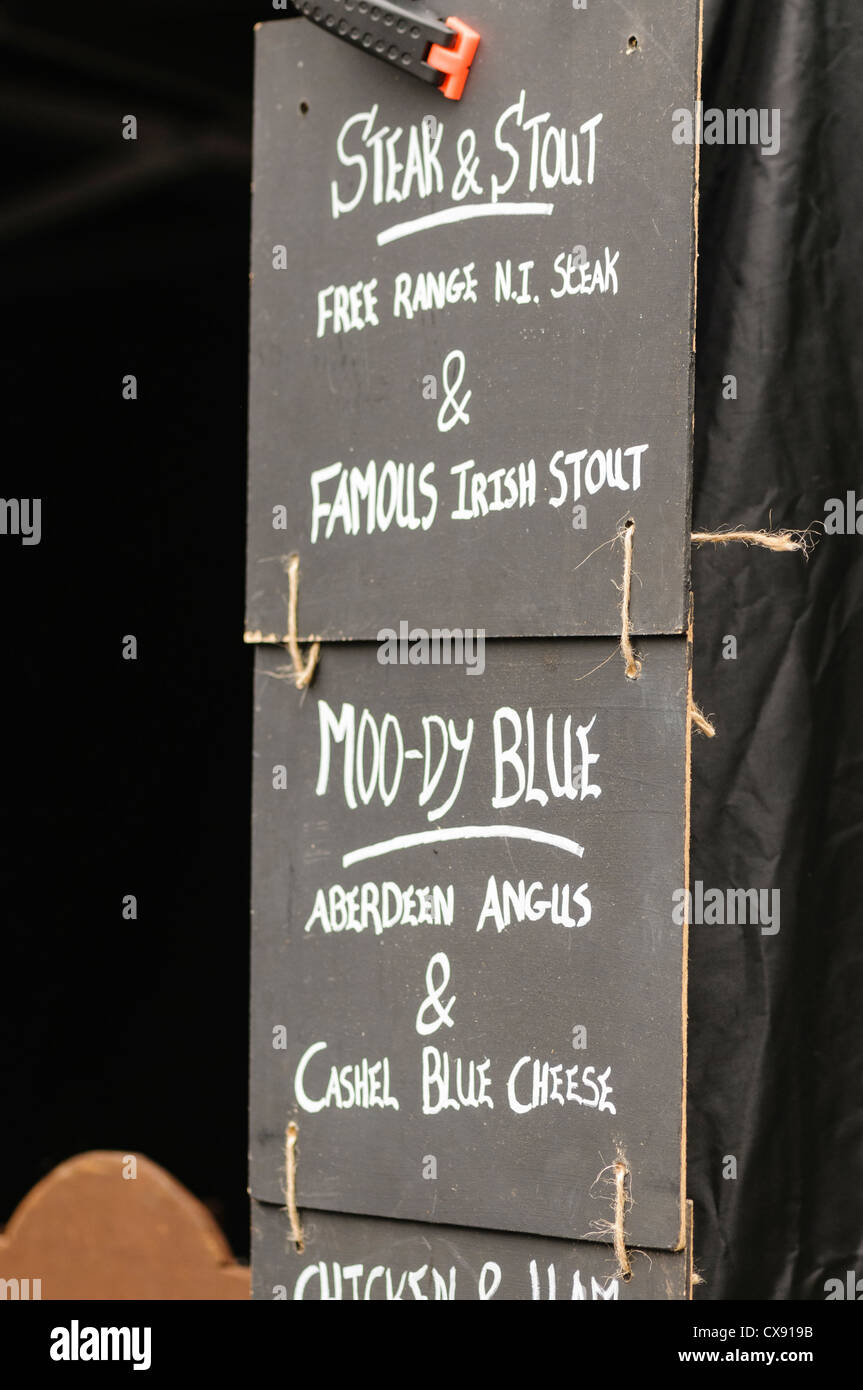 STEAK & STOUT
FREE RANGE N.I. STEAK
&
FAMOUS IRISH STOUT
MOO-DY BLUE
ABERDEEN ANGUS
&
CASHEL BLUE CHEESE
CHICKEN & HAM
alamy
Image ID: CX919B
www.alamy.com